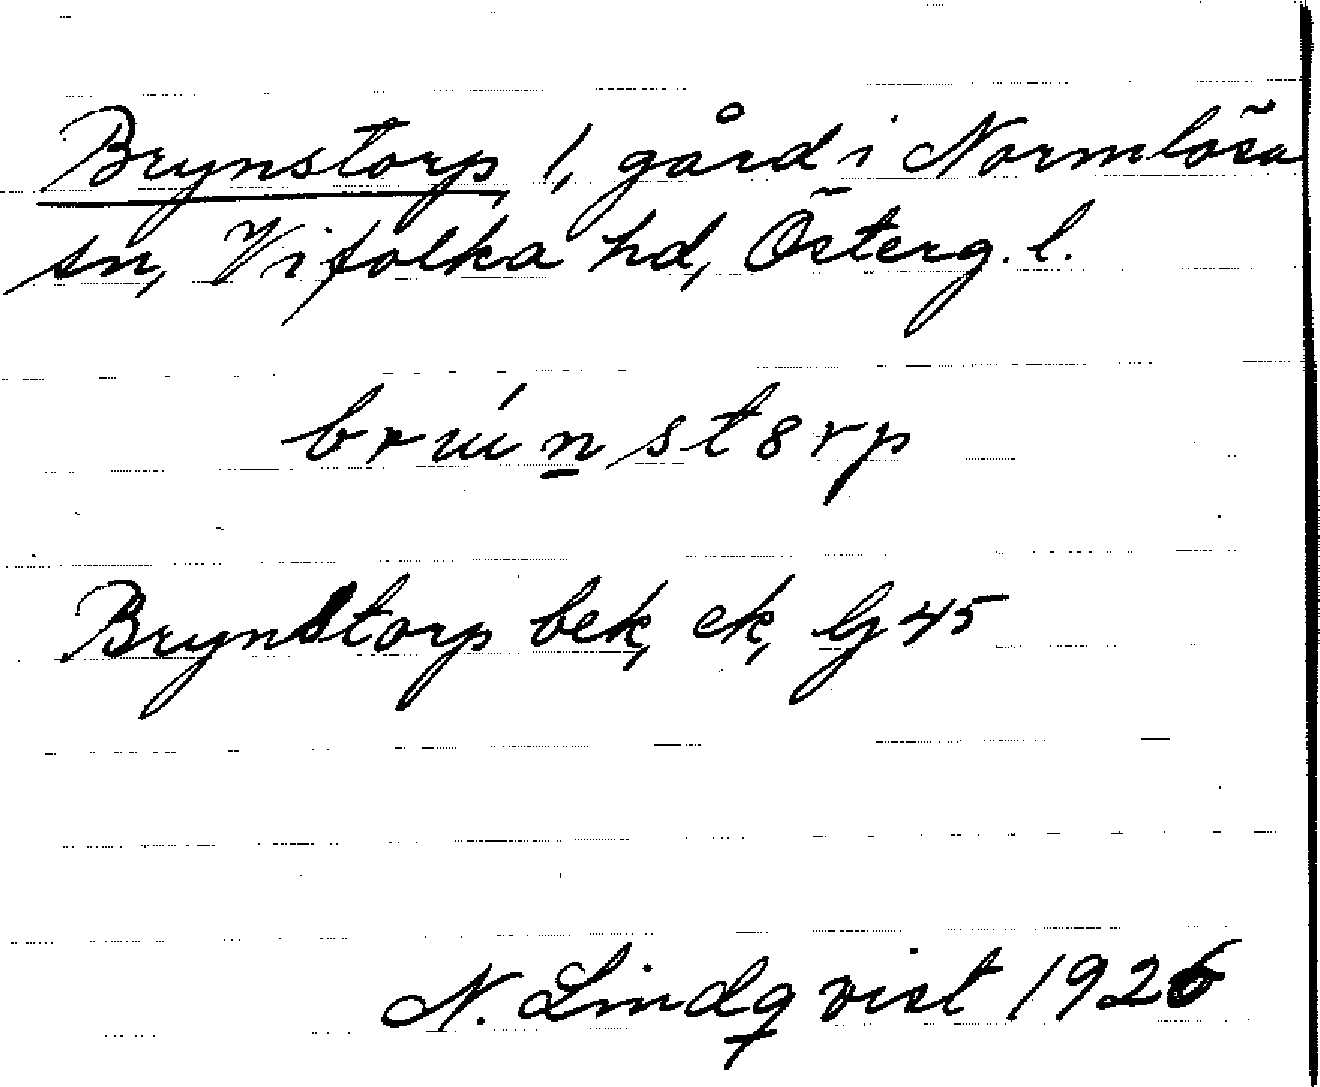 Brynstorp 1, gård i Normlösa
sn, Vifolka hd, Österg. l.
Brynstorp bek, ek, Gj 45
N. Lindqvist 1926